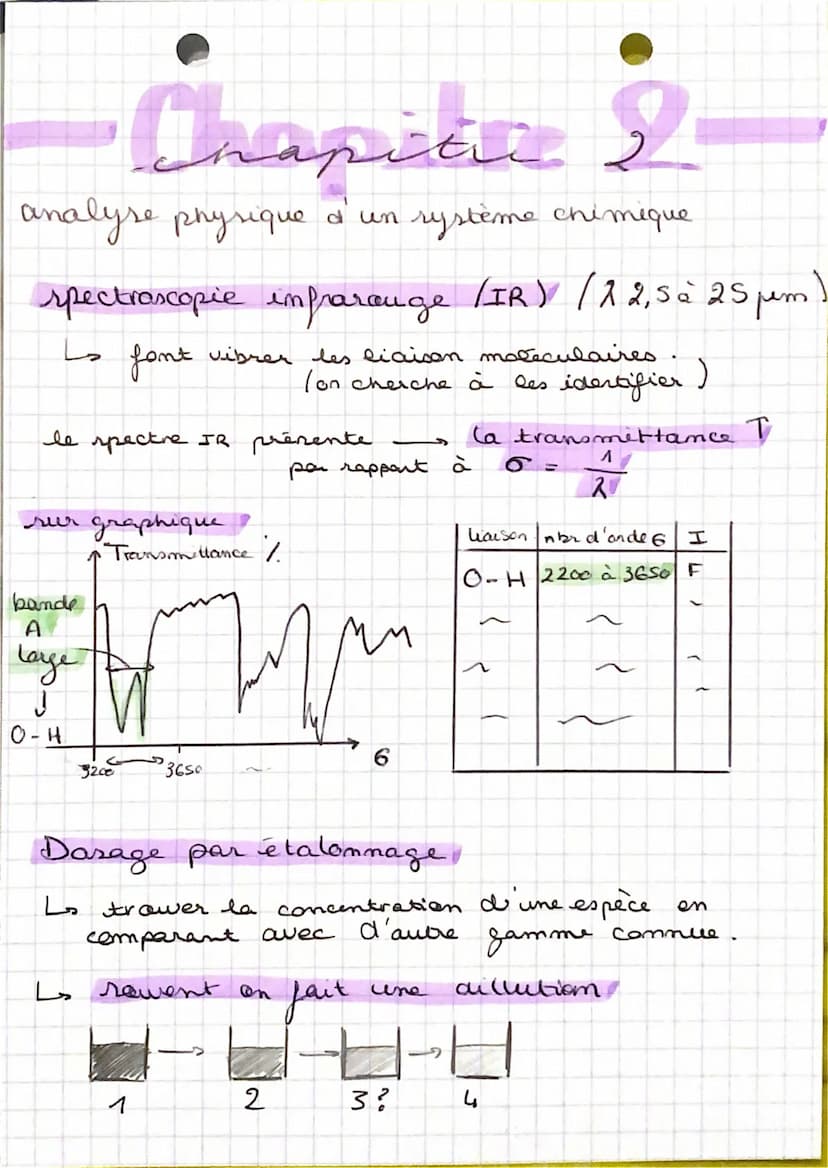 Chapitre 2
chapitre 2
analyse physique d'un système chimique
spectroscopie infrarouge (IR) (λ 2,5 à 25 μm)
↳ font vibrer les liaison moléculaires.
(on cherche à les identifier)
le spectre IR présente → la transmittance T
par rapport à σ = 1/λ
sur graphique
Transmittance %
bande
A
large
↓
O-H
3200 3650 ~ σ
liaison | nbr d'onde σ | I
O-H | 2200 à 3650 | F
Dosage par étalonnage
↳ trouver la concentration d'une espèce en
comparant avec d'autre gamme connue.
↳ souvent on fait une dillution
1 → 2 → 3? → 4